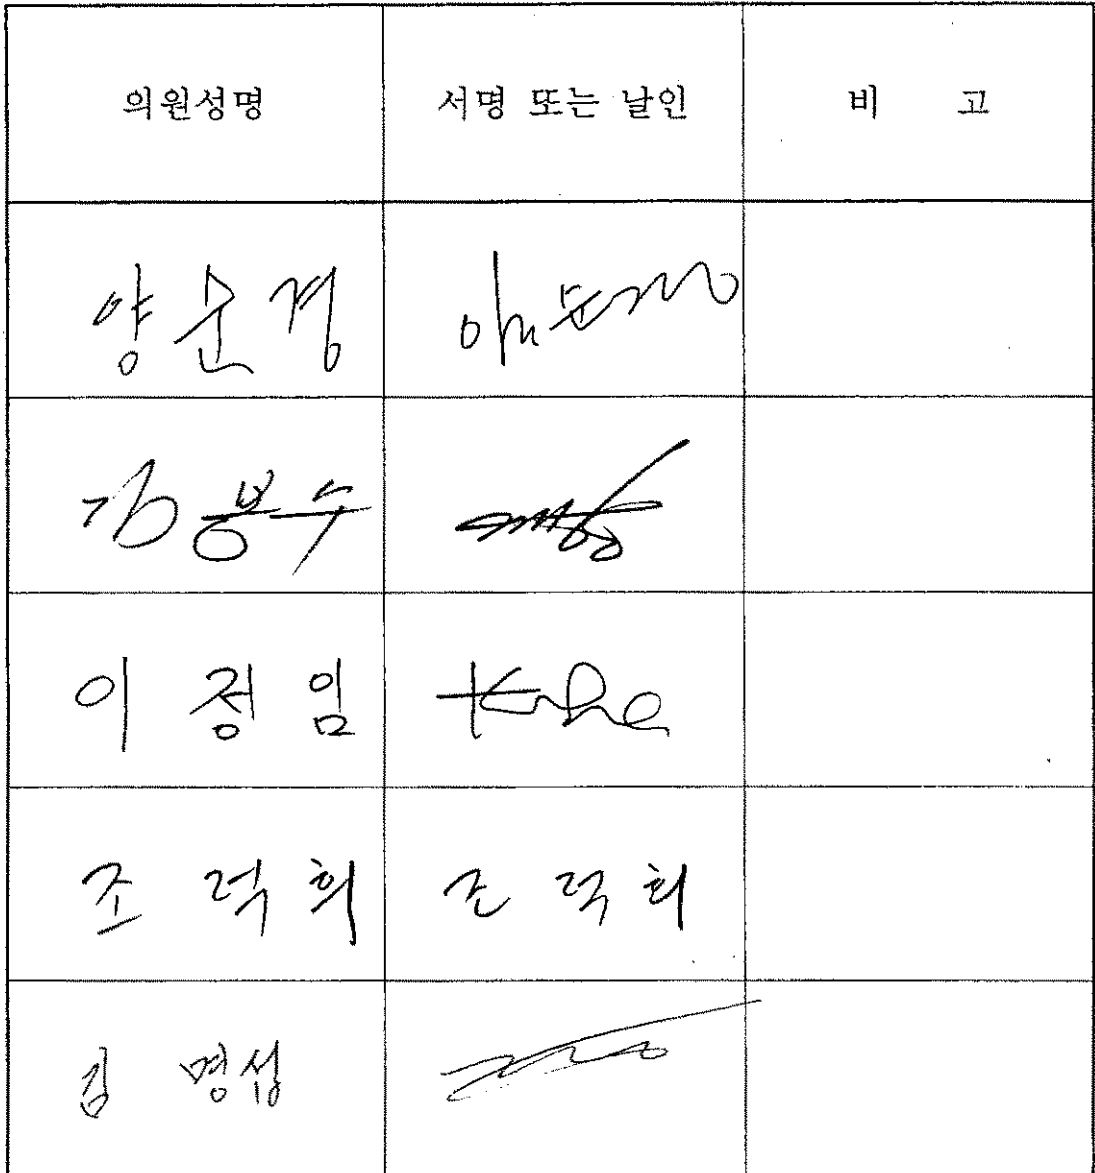 의원성명 서명 또는 날인 비 고
양운경
김봉수
이 정 임
조 덕 희 조 덕 희
김 명섭